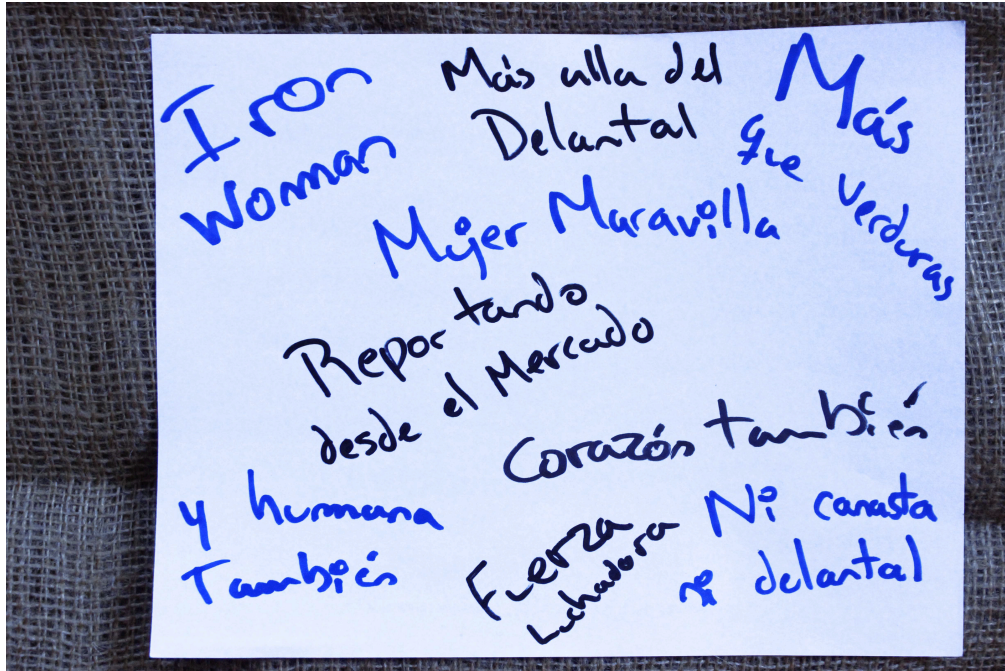 Iron
Woman
Más alla del
Delantal
Más
que verduras
Mujer Maravilla
Reportando
desde el Mercado
Corazón también
y humana
También
Fuerza
Luchadora
Ni canasta
ni delantal